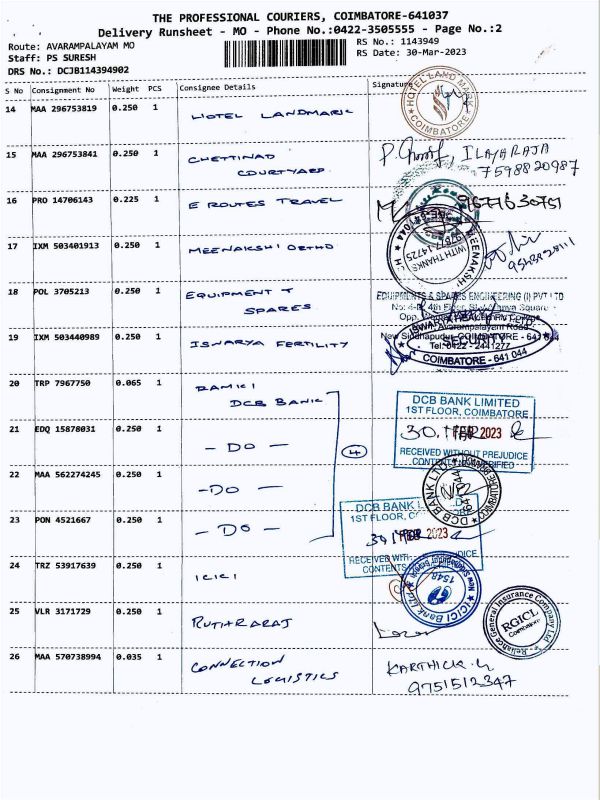 THE PROFESSIONAL COURIERS, COIMBATORE-641037
Delivery Runsheet - MO - Phone No.:0422-3505555 - Page No.:2
Route: AVARAMPALAYAM MO
RS No.: 1143949
Staff: PS SURESH
RS Date: 30-Mar-2023
DRS No.: DCJB114394902
S No Consignment No Weight PCS Consignee Details Signature
14 MAA 296753819 0.250 1 HOTEL LANDMARK
HOTEL LAND MARK
COIMBATORE
15 MAA 296753841 0.250 1 CHETTINAD
COURTYARD
ILAYARAJA
7598820987
16 PRO 14706143 0.225 1 E ROUTES TRAVEL
9677630751
17 IXM 503401913 0.250 1 MEENAKSHI ORTHO
WITH THANKS
MEENAKSHI
18 POL 3705213 0.250 1 EQUIPMENT &
SPARES
EQUIPMENTS & SPARES ENGINEERING (I) PVT LTD
19 IXM 503440989 0.250 1 ISWARYA FERTILITY
Avarampalayam Road
New Siddhapudur, COIMBATORE - 641 044
Tel: 0422 - 2441277
COIMBATORE - 641 044
20 TRP 7967750 0.065 1 RAMKI
DCB BANK
DCB BANK LIMITED
1ST FLOOR, COIMBATORE
21 EDQ 15878031 0.250 1 - DO -
4
30 MAR 2023
RECEIVED WITHOUT PREJUDICE
CONTENTS NOT VERIFIED
22 MAA 562274245 0.250 1 - DO -
DCB BANK LTD
23 PON 4521667 0.250 1 - DO -
DCB BANK
1ST FLOOR, CO
2023
RECEIVED WITH
CONTENTS
24 TRZ 53917639 0.250 1 ICICI
ICICI Bank Ltd
1548
25 VLR 3171729 0.250 1 RUTHRARAJ
Reliance General Insurance Company Ltd
RGICL
COIMBATORE
26 MAA 570738994 0.035 1 CONNECTION
LOGISTICS
KARTHICK.
9751512347